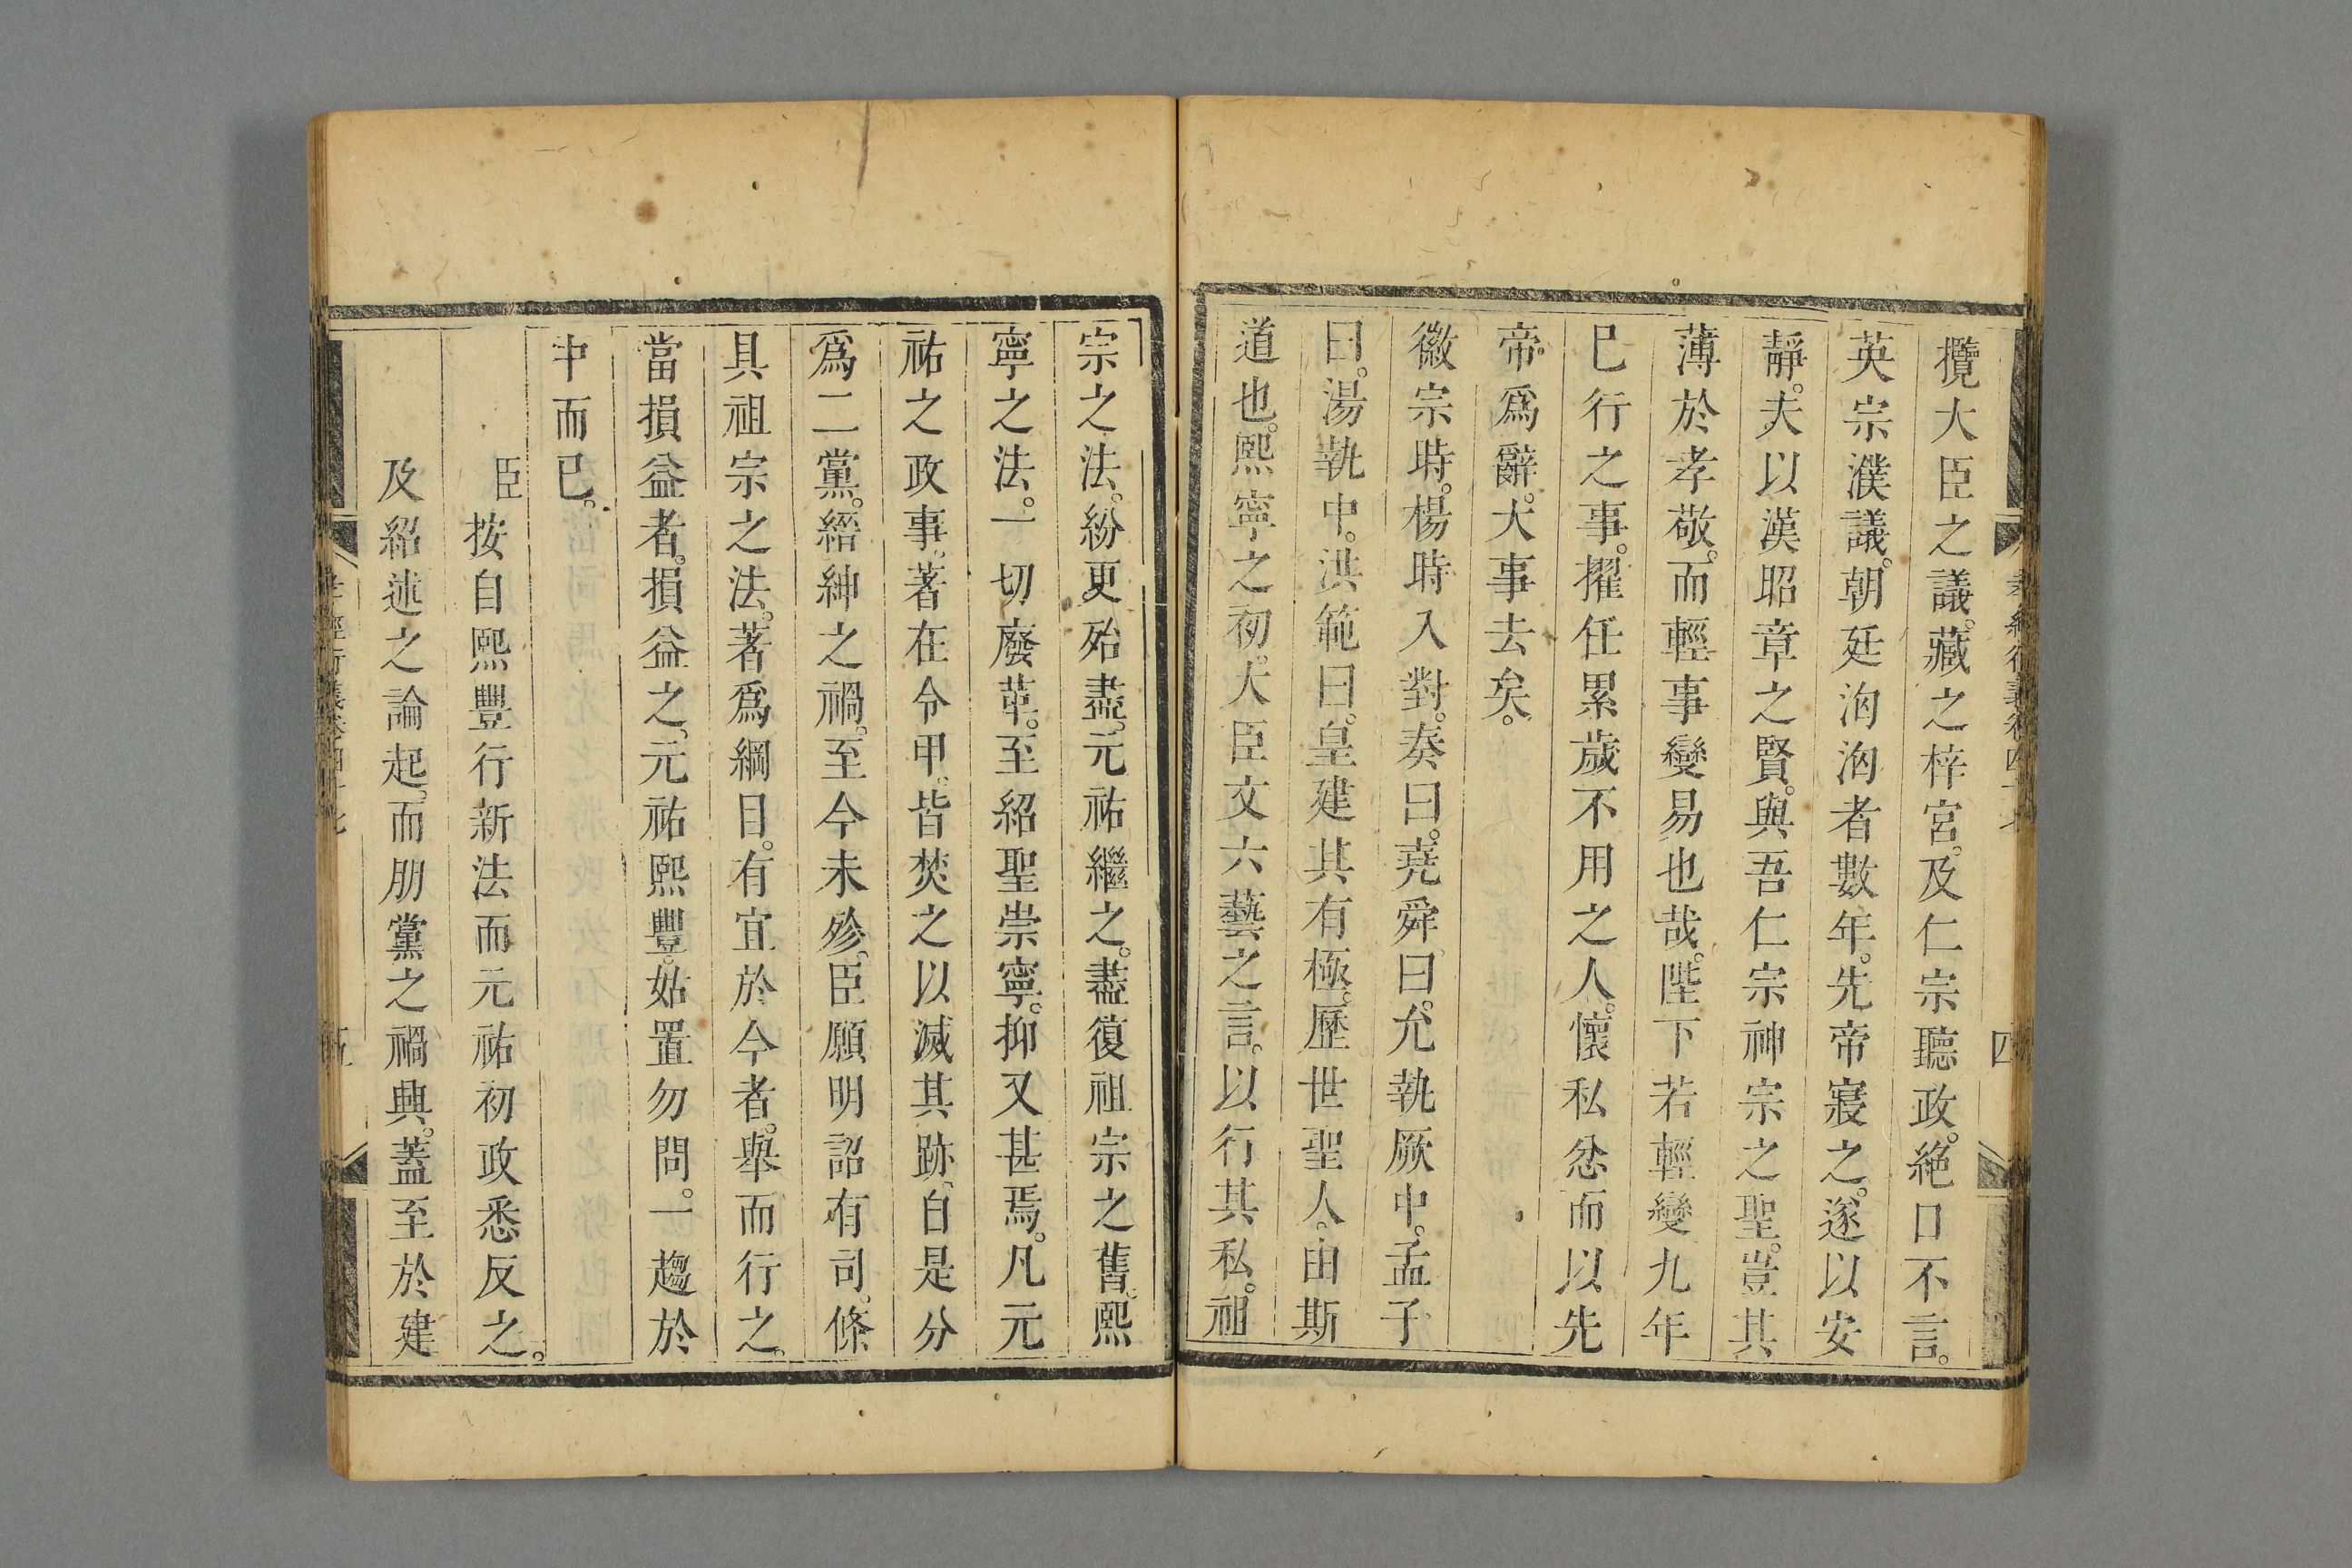 攬大臣之議。藏之梓宮。及仁宗聽政。絕口不言。
英宗濮議。朝廷洶洶者數年。先帝寢之。遂以安
靜。夫以漢昭章之賢。與吾仁宗神宗之聖。豈其
薄於孝敬。而輕事變易也哉。陛下若輕變九年
已行之事。擢任累歲不用之人。懷私忿而以先
帝爲辭。大事去矣。
徽宗時。楊時入對。奏曰。堯舜曰。允執厥中。孟子
曰。湯執中。洪範曰。皇建其有極。歷世聖人。由斯
道也。熙寧之初。大臣文六藝之言。以行其私。祖
宗之法。紛更殆盡。元祐繼之。盡復祖宗之舊。熙
寧之法。一切廢革。至紹聖崇寧。抑又甚焉。凡元
祐之政事。著在令甲。皆焚之以滅其跡。自是分
爲二黨。縉紳之禍。至今未殄。臣願明詔有司。條
具祖宗之法。著爲綱目。有宜於今者。舉而行之。
當損益者。損益之。元祐熙豐。姑置勿問。一趨於
中而已。
臣按自熙豐行新法而元祐初政悉反之。
及紹述之論起。而朋黨之禍興。蓋至於建